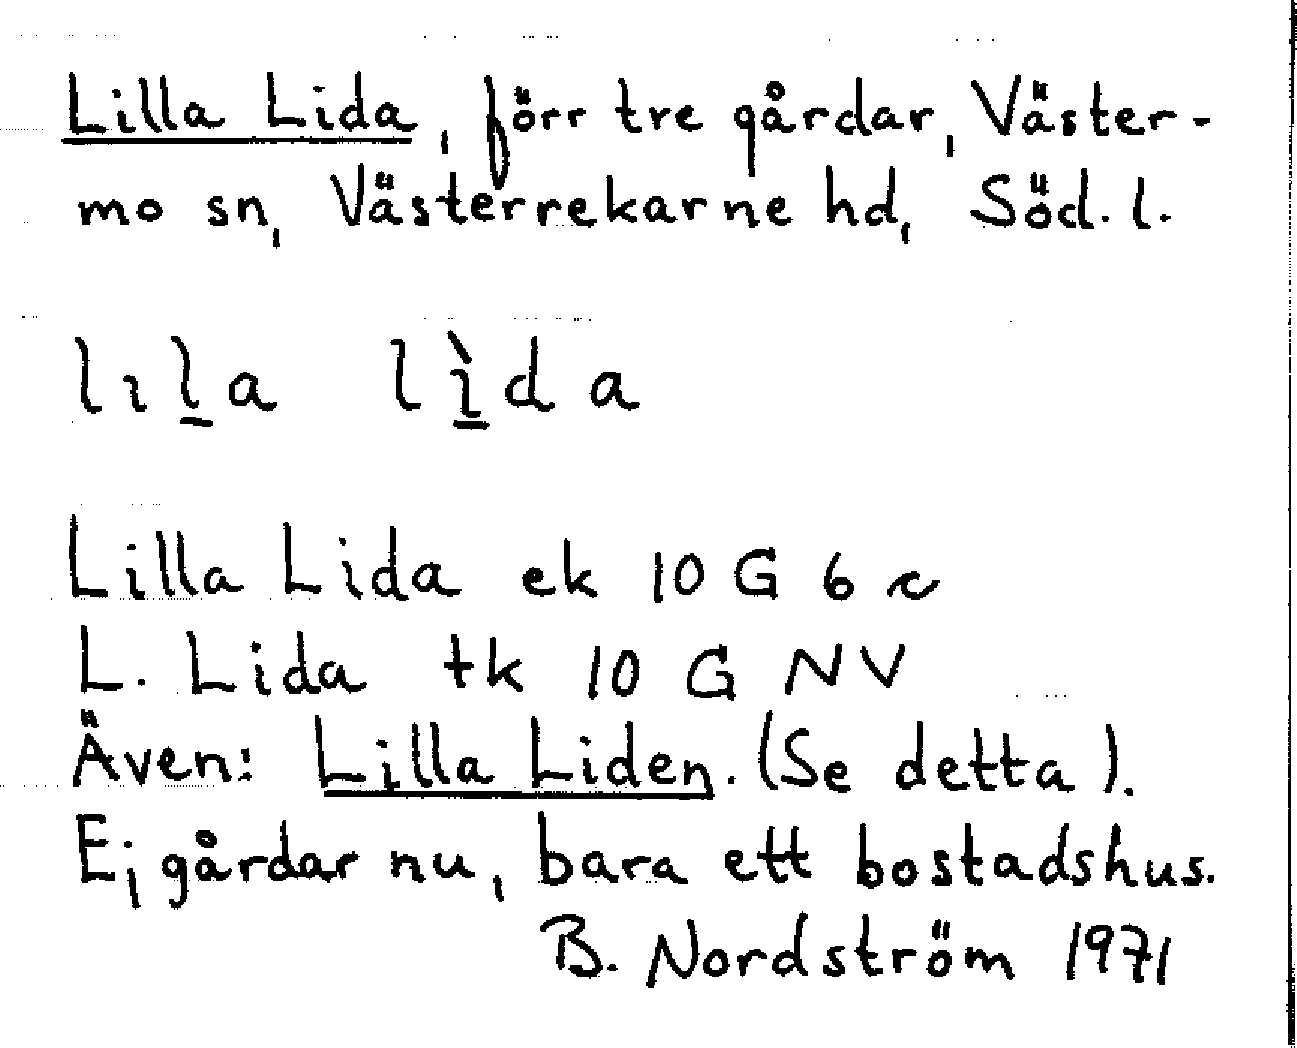 Lilla Lida, förr tre gårdar, Väster-
mo sn, Västerrekarne hd, Söd. l.
lıl̲a lì̲da
Lilla Lida ek 10 G 6 c
L. Lida tk 10 G NV
Även: Lilla Liden. (Se detta).
Ej gårdar nu, bara ett bostadshus.
B. Nordström 1971